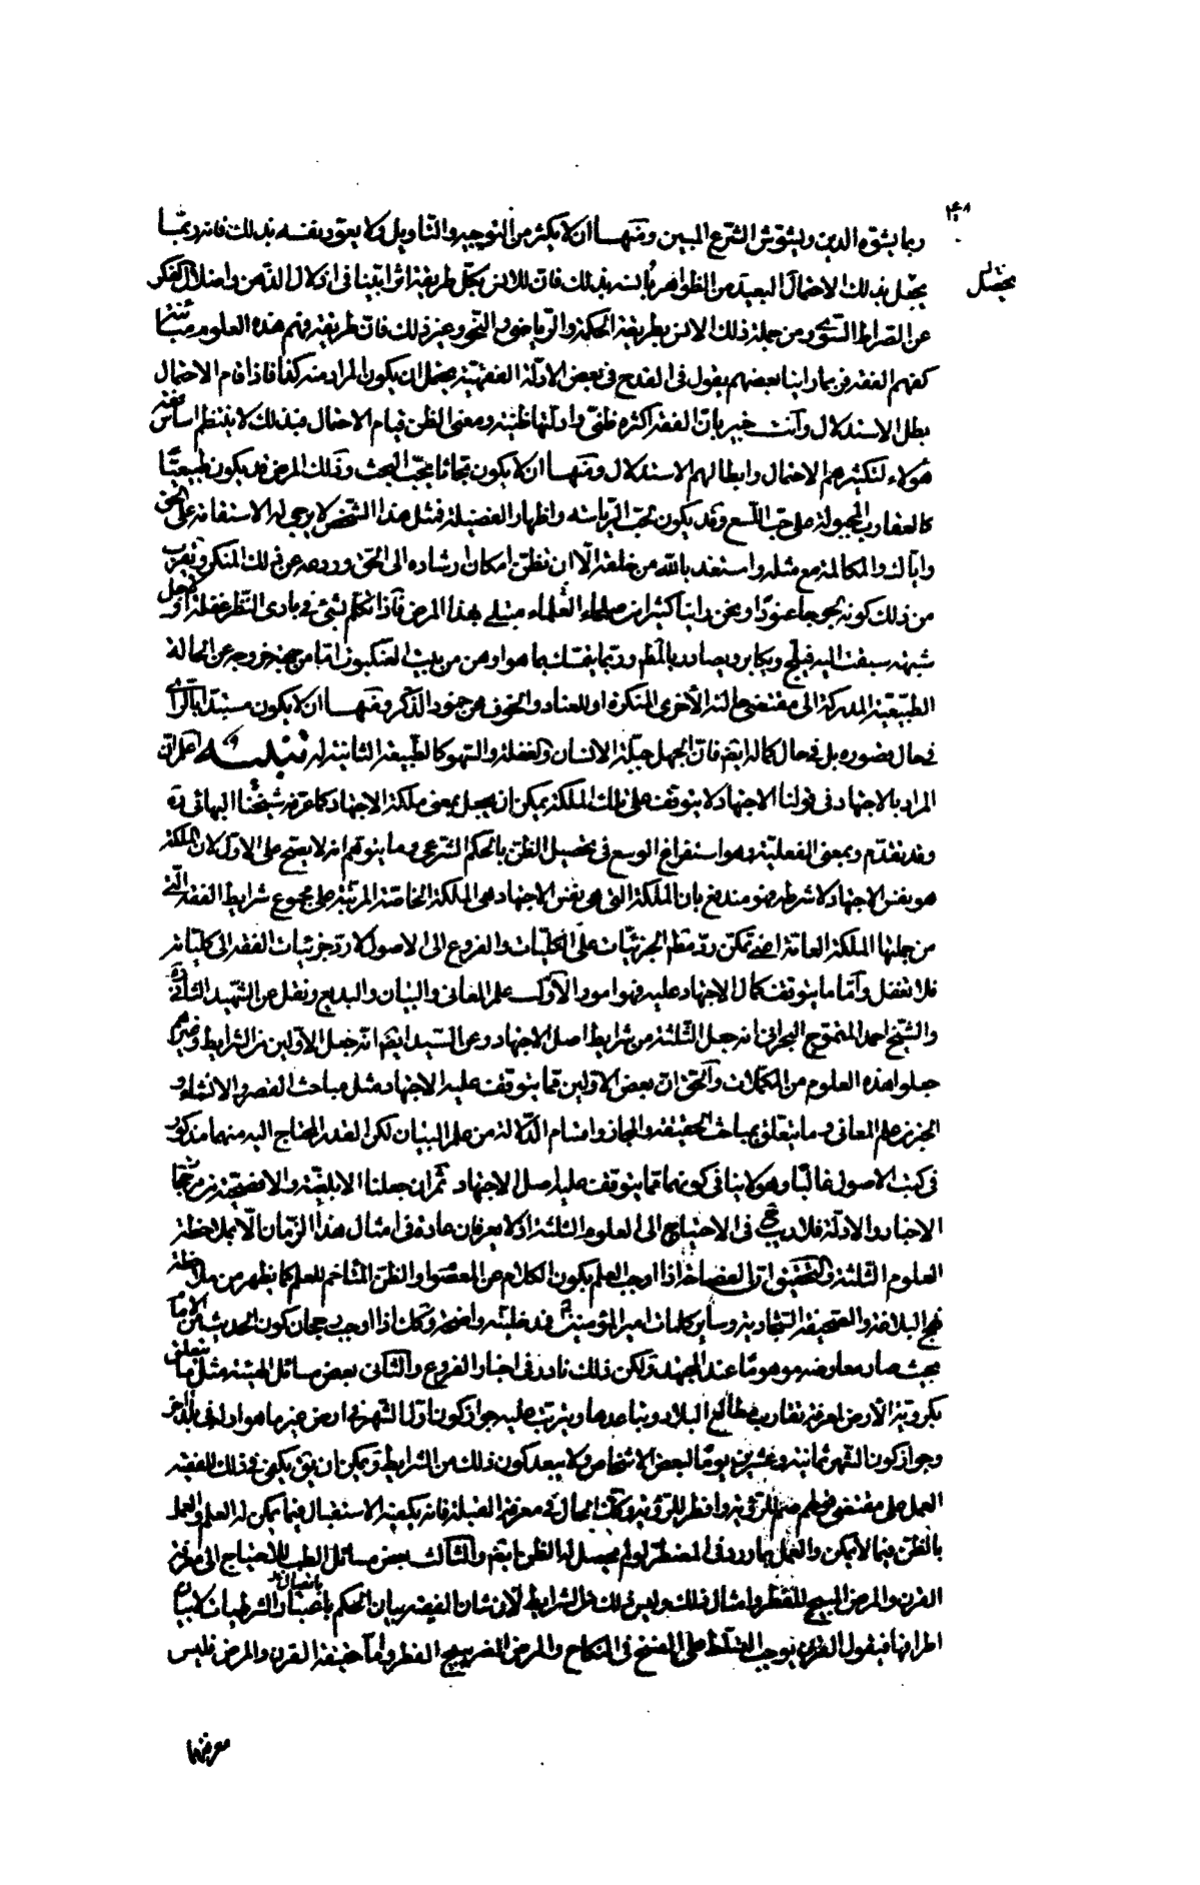 ربما يشوّه الدين ويشوّش الشرع المبين ومنهـا ان لا يكثر من التوجيه والتاويل ولا يعوّد نفسه بذلك فانه ربمّا
يحصل
يجعل بذلك الاحتمال البعيد من الظواهر بالنسه بذلك فان للانس بكل طريقة اثرا بيّنا في اذلال الذهن واضلال الفكر
عن الصراط السوي ومن جملة ذلك الانس بطريقة الحكمة والرياضي والنحو وغير ذلك فان طريقة فهم هذه العلوم مباينة
كفهم الفقه فربما راينا بعضهم يقول في القدح في بعض الادلّة الفقهيّة يحتمل ان يكون المراد منه كذا فاذا قام الاحتمال
بطل الاستدلال وانت خبير بانّ الفقه اكثره ظنّي وادلّتها ظنّية ومعنى الظن قيام الاحتمال فبذلك لا ينتظم اساس فقه
هؤلاء لتكثيرهم الاحتمال وابطالهم الاستدلال ومنهـا ان لا يكون بحّاثا يحبّ البحث وذلك المرض قد يكون طبيعيّا
كالعقارب المجبولة على حبّ اللّسع وقد يكون لحبّ الرياسة واظهار الفضيلة فمثل هذا الشخص لا يرجى له الاستقامة على الحق
واياك والمكالمة مع مثله واستعذ بالله من خلقته الّا ان تظنّ امكان ارشاده الى الحق وردعه عن ذلك المنكر ويقرب
من ذلك كونه لجوجا عنودا ونحن راينا كثيرا من صلحاء العلماء مبتلى بهذا المرض فاذا تكلّم بشيء في بادي النظر غفلة او لاجل
شبهة سبقت اليه فيلجّ ويكابر ويصادر بالمطلوب وربّما يتمسّك بما هو اوهن من بيت العنكبوت امّا من جهة خروجه عن الحالة
الطبيعية المدركة الى مقتضى حالته الأخرى المنكرة او للعناد والخوف من خمود الذكر ومنهـا ان لا يكون مستبدّا بالراي
في حال قصوره بل في حال كماله ايضا فان الجهل جبلّة الانسان والغفلة والسهو كالطبيعة الثانية له تنبيـه اعلم ان
المراد بالاجتهاد في قولنا الاجتهاد لا يتوقف على تلك الملكة يمكن ان يجعل بمعنى ملكة الاجتهاد كما عرّفه شيخنا البهائي ره
وقد تقدّم وبمعنى الفعلية وهو استفراغ الوسع في تحصيل الظن بالحكم الشرعي وما يتوهم انه لا يصح على الاوّل لان الملكة
هو نفس الاجتهاد لا شرطه فهو مندفع بان الملكة التي هي نفس الاجتهاد هي الملكة الخاصّة المترتبة على مجموع شرايط الفقه التي
من جملتها الملكة العامّة اعني تمكن ردّ مطلق الجزئيّات على الكليّات والفروع الى الاصول لا ردّ جزئيات الفقه الى كلّياته
فلا تغفل وأمّا ما يتوقف كمال الاجتهاد عليه فهو امور الاوّل علم المعاني والبيان والبديع ونقل عن الشهيد الثاني ره
والشيخ احمد المتوّج البحراني انه جعل الثلثة من شرايط اصل الاجتهاد وعن السيّد ايضا انه جعل الاوّلين من الشرايط وغيرهم
جعلوا هذه العلوم من المكملات والحق ان بعض الاوّلين مما يتوقف عليه الاجتهاد مثل مباحث القصر والانشاء و
الخبر من علم المعاني وما يتعلق بمباحث الحقيقة والمجاز واقسام الدّلالة من علم البيان لكن القدر المحتاج اليه منهما مذكور
في كتب الاصول غالبا وهو لا ينافي كونهما مما يتوقف عليه اصل الاجتهاد ثم ان جعلنا الابلغيّة والافصحيّة من مرجّحات
الاخبار والادلّة فلا ريب في الاحتياج الى العلوم الثلثة اذ لا يعرفان عادة في امثال هذا الزمان الّا بملاحظة
العلوم الثلثة والتحقيق ان الفصاحة اذا اوجب العلم بكون الكلام عن المعصوم او الظن المتاخم للعلم كما يظهر من ملاحظة
نهج البلاغة والصحيفة السجّادية وساير كلمات امير المؤمنين فمدخليّته واضحة وكك اذا اوجب رجحان كون الحديث من الامام
بحيث صار معارضه موهوما عند المجتهد ولكن ذلك نادر في اخبار الفروع والثاني بعض مسائل الهيئة مثل ما يتعلق
بكرويّة الأرض لمعرفة تقارب مطالع البلاد وتباعدها ويترتب عليه جواز كون اوّل الشهر في ارض غير ما هو اوله في بلد اخر
وجواز كون الشهر ثمانية وعشرين يوما لبعض الاشخاص ولا يبعد كون ذلك من الشرايط ويمكن ان يق يكفي في ذلك للفقيه
العمل على مقتضى قولهم صم للرؤية وافطر للرؤية وكك الحال في معرفة القبلة فانه يكفيه الاستقبال فيما يمكن له العلم والعمل
بالظن فيما لا يمكن والعمل بما ورد في المضطر لو لم يحصل له الظن ايضا والثالث بعض مسائل الطب للاحتياج الى معرفة
القرن والمرض المبيح للفطر وامثال ذلك وليس ذلك من الشرايط لان شان الفقيه بيان الحكم باعتبار الشرطيات لا بيان
اطرافها فيقول القرن يوجب التسلّط على الفسخ في النكاح والمرض المضر يبيح الفطر وامّا حقيقة القرن والمرض فليس
معرفتها